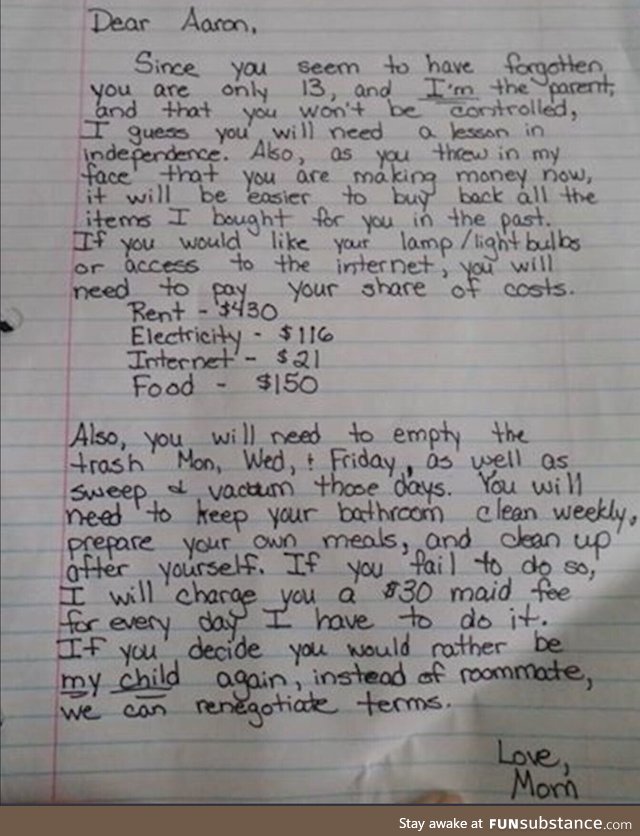 Dear Aaron,
Since you seem to have forgotten
you are only 13, and I'm the parent,
and that you won't be controlled,
I guess you will need a lesson in
independence. Also, as you threw in my
face that you are making money now,
it will be easier to buy back all the
items I bought for you in the past.
If you would like your lamp/lightbulbs
or access to the internet, you will
need to pay your share of costs.
Rent - $430
Electricity - $116
Internet - $21
Food - $150
Also, you will need to empty the
trash Mon, Wed, & Friday, as well as
sweep & vacuum those days. You will
need to keep your bathroom clean weekly,
prepare your own meals, and clean up
after yourself. If you fail to do so,
I will charge you a $30 maid fee
for every day I have to do it.
If you decide you would rather be
my child again, instead of roommate,
we can renegotiate terms.
Love,
Mom
Stay awake at FUNsubstance.com